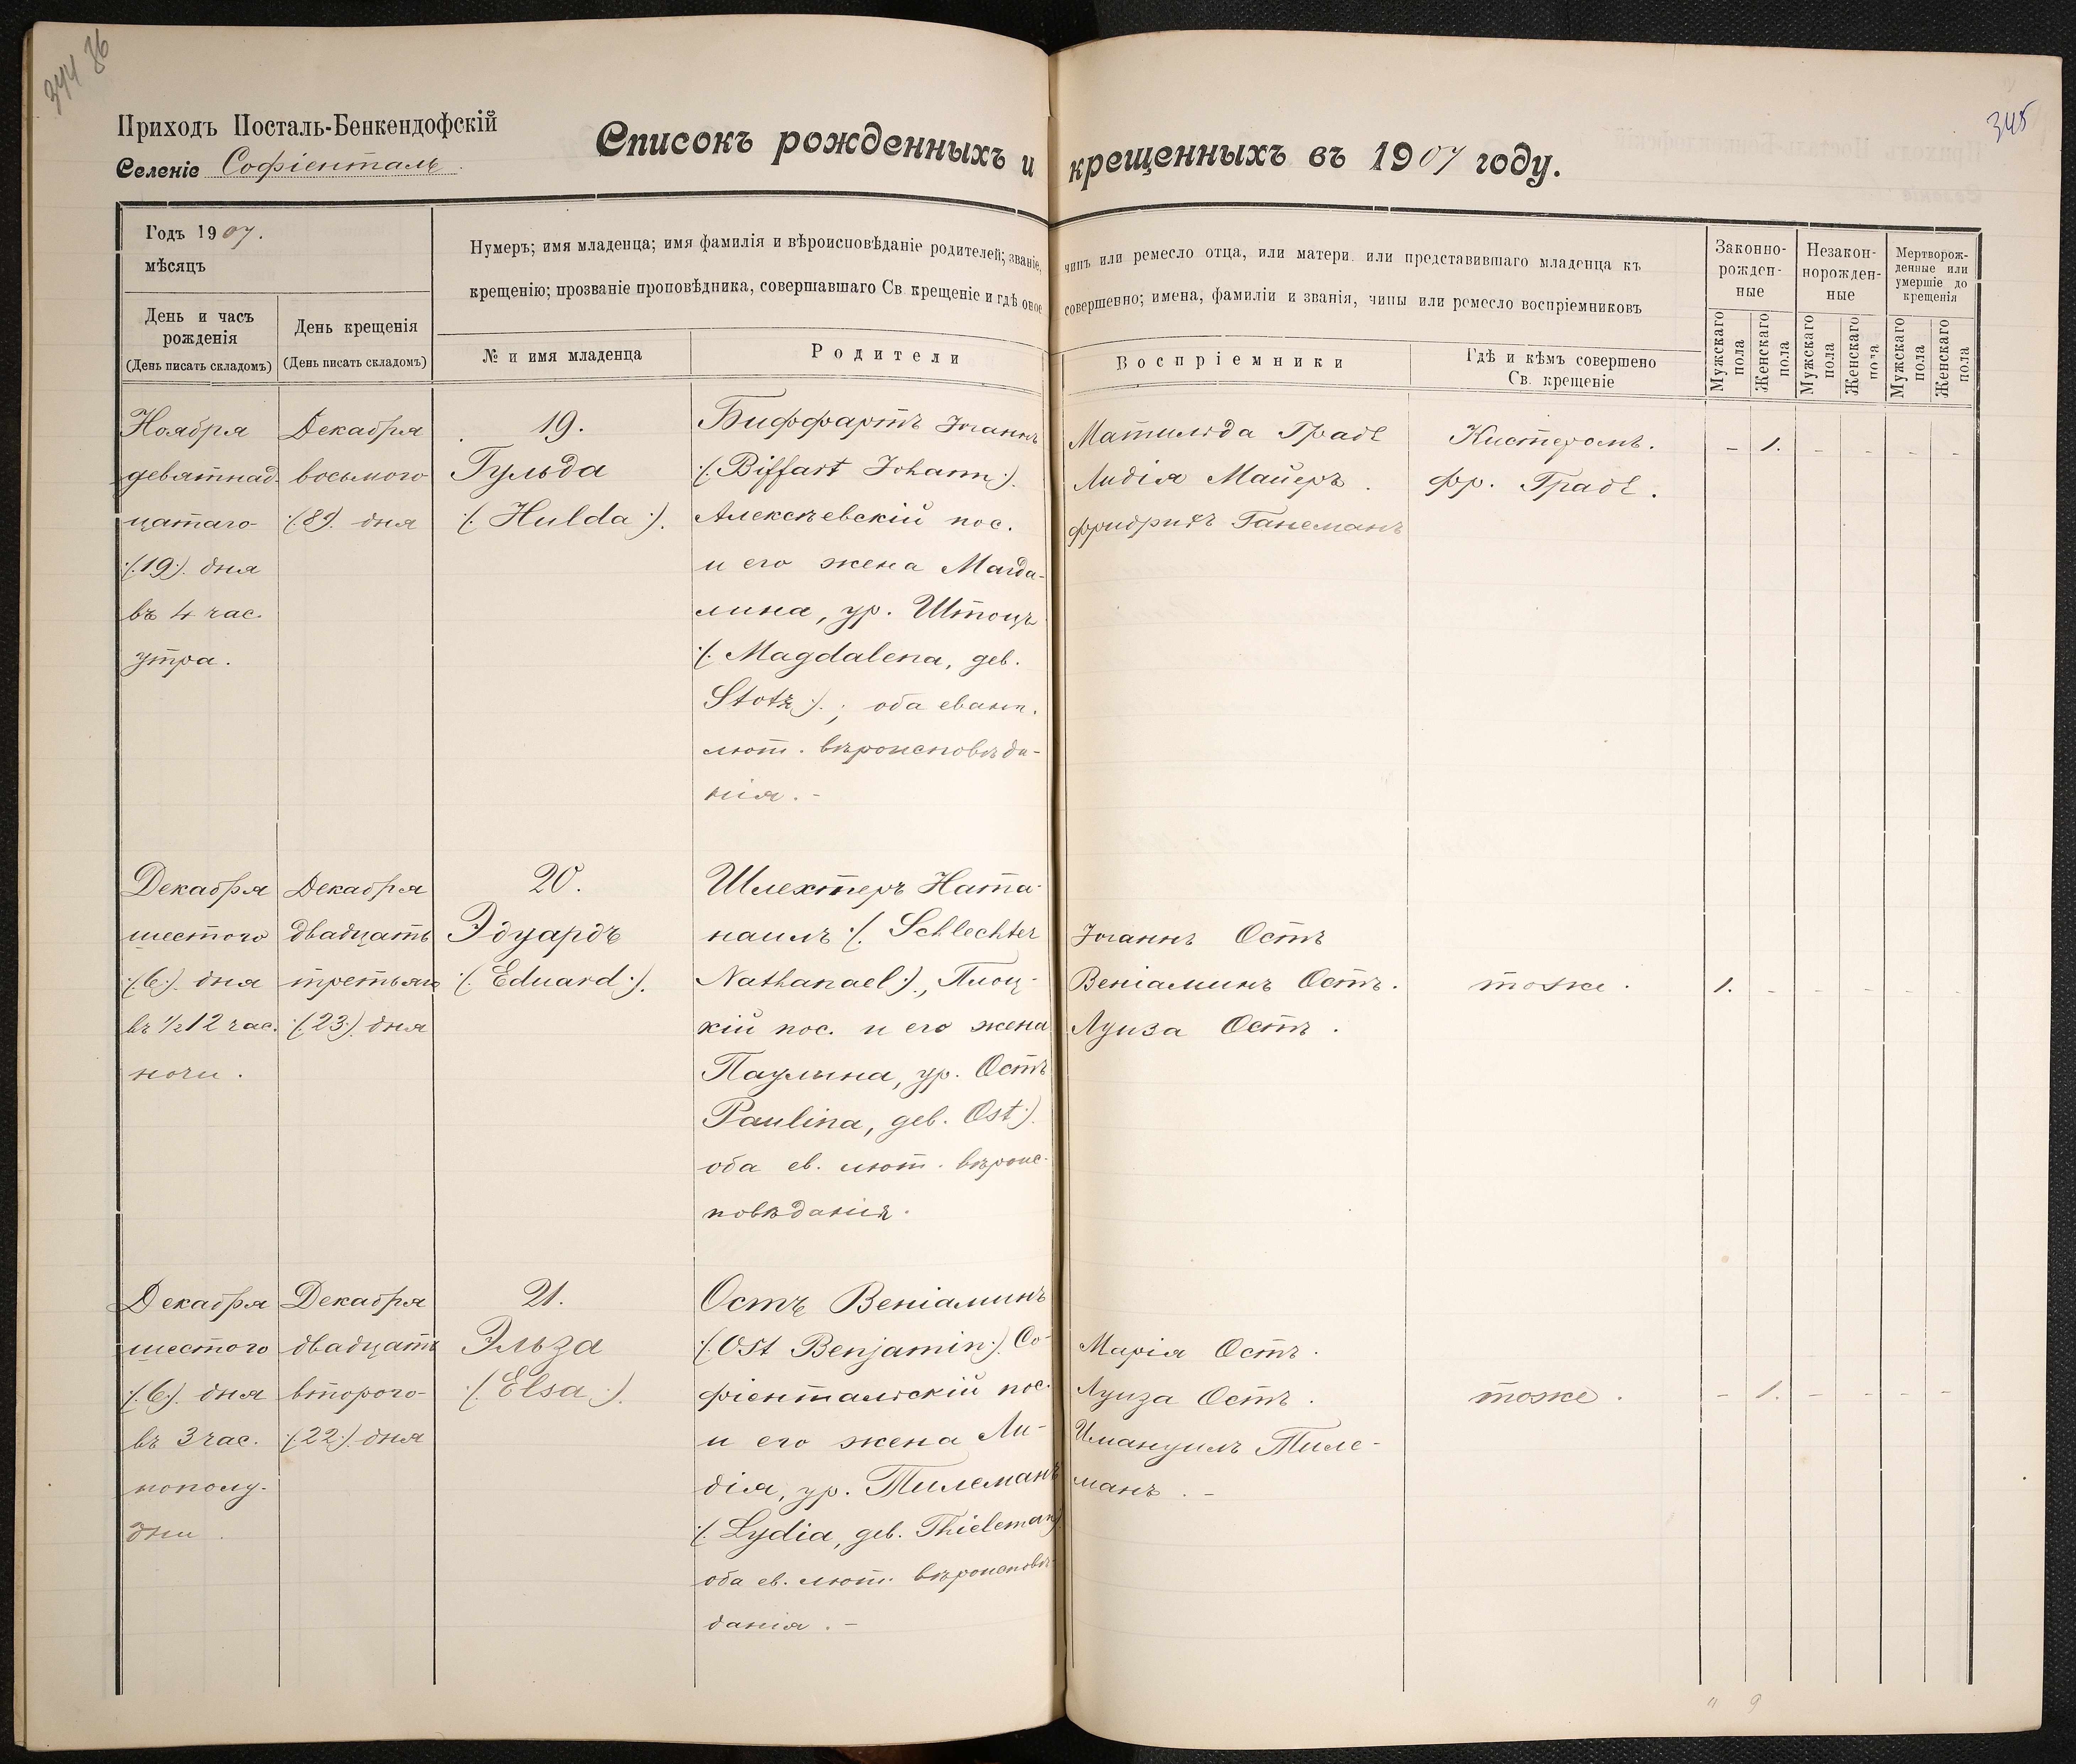 344 86
345
Приходъ Посталь-Бенкендофскій
Селеніе Софіенталь.
Списокъ рожденныхъ и крещенныхъ въ 1907 году.
Годъ 1907.
мѣсяцъ
День и часъ
рожденія
(День писать складомъ)
День крещенія
(День писать складомъ)
Нумеръ; имя младенца; имя фамилія и вѣроисповѣданіе родителей; званіе, чинъ или ремесло отца, или матери или представившаго младенца къ
крещенію; прозваніе проповѣдника, совершавшаго Св. крещеніе и гдѣ оное совершенно; имена, фамиліи и званія, чины или ремесло воспріемниковъ
№ и имя младенца
Родители
Воспріемники
Гдѣ и кѣмъ совершено
Св. крещеніе
Законно-
рожден-
ные
Незакон-
норожден-
ные
Мертворож-
денные или
умершіе до
крещенія
Мужскаго
пола
Женскаго
пола
Мужскаго
пола
Женскаго
пола
Мужскаго
пола
Женскаго
пола
Ноября
девятнад-
цатаго
(:19:) дня
въ 4 час.
утра.
Декабря
восьмого
(:8:) дня
19.
Гульда
(: Hulda :).
Биффартъ Іоганнъ
(: Biffart Johann :).
Алексѣевскій пос.
и его жена Магда-
лина, ур. Штоцъ
(: Magdalena, geb.
Stotz :).; оба еванг.
лют. вѣроисповѣда-
нія. -
Матильда Граде
Лидія Майеръ.
Фридрихъ Ганеманъ
Кистеромъ.
Фр. Граде.
- 1. - - - -
Декабря
шестого
(:6:) дня
въ ½12 час.
ночи.
Декабря
двадцать
третьяго
(:23:) дня
20.
Эдуардъ
(: Eduard :).
Шлехтеръ Ната-
наилъ (: Schlechter
Nathanael :)., Плоц-
кій пос. и его жена
Паулина, ур. Остъ
Paulina, geb. Ost :).
оба ев. лют. вѣроис-
повѣданія.
Іоганнъ Остъ
Веніаминъ Остъ.
Луиза Остъ.
тоже.
1. - - - - -
Декабря
шестого
(:6:) дня
въ 3 час.
пополу-
дни.
Декабря
двадцать
второго
(:22:) дня
21.
Эльза
(: Elsa :).
Остъ Веніаминъ
(: Ost Benjamin :). Со-
фіентальскій пос.
и его жена Ли-
дія, ур. Тилеманъ
(: Lydia, geb. Thieleman :).
оба ев. лют. вѣроисповѣ-
данія. -
Марія Остъ.
Луиза Остъ.
Имануилъ Тиле-
манъ. -
тоже.
- 1. - - - -
" 9